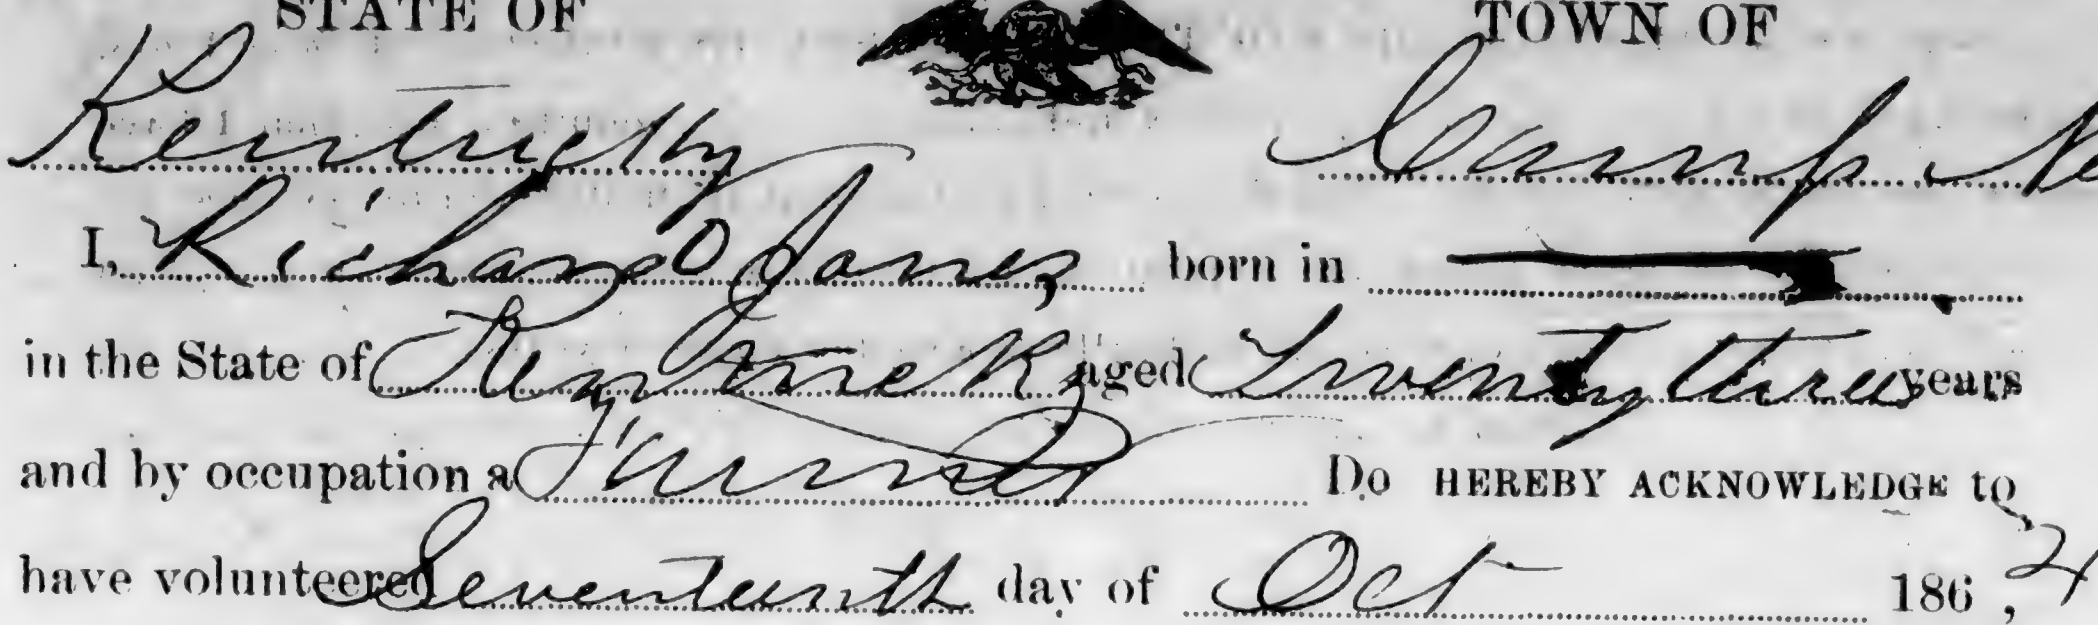 STATE OF TOWN OF
Kentucky Camp Ne
I, Richard Jones born in
in the State of Kentucky aged Twenty three years
and by occupation a Farmer Do HEREBY ACKNOWLEDGE to
have volunteered Seventeenth day of Oct 186 , 4